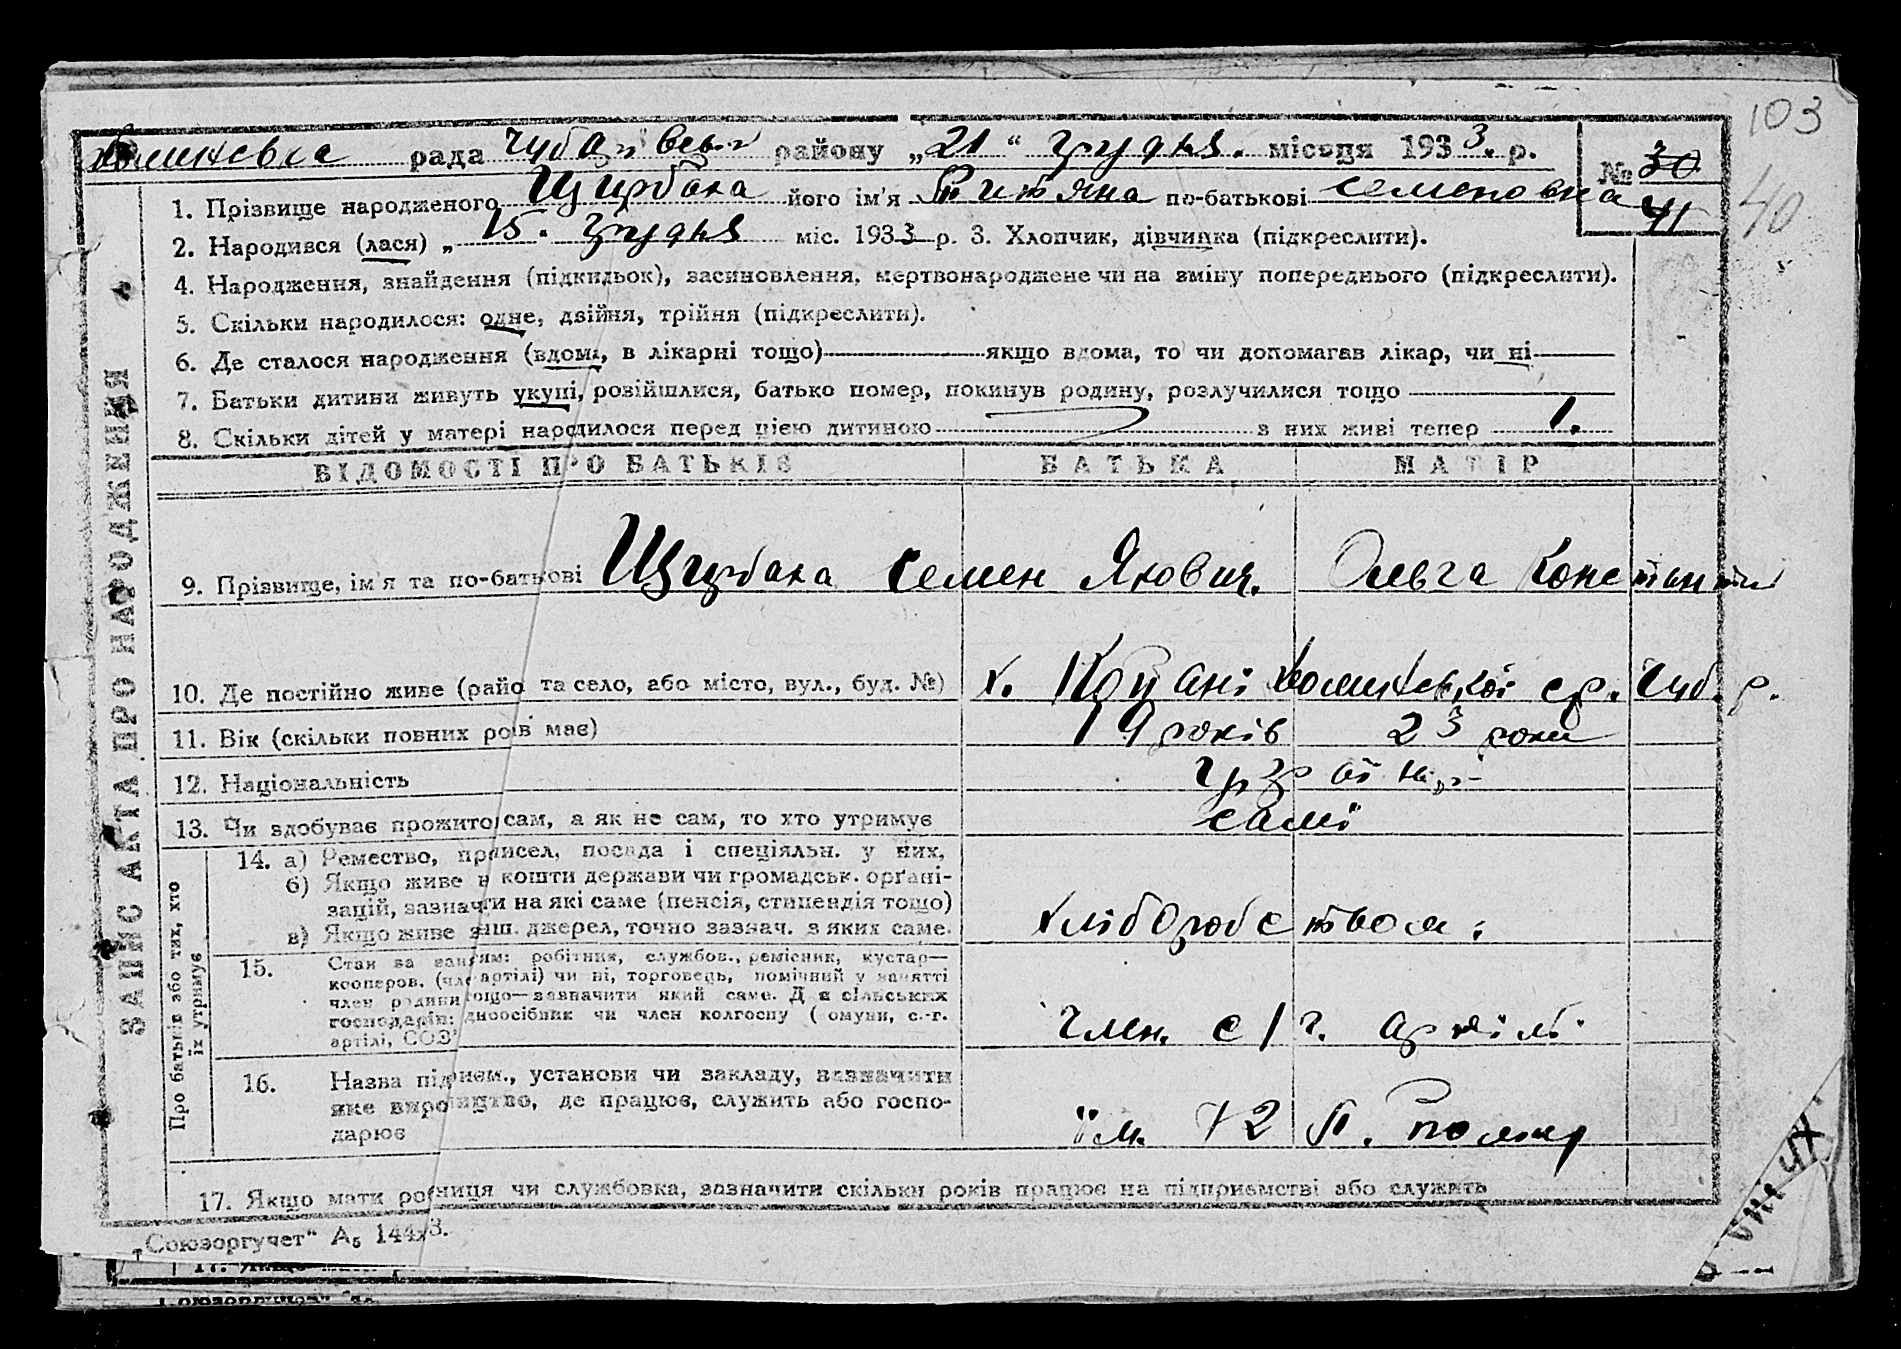 103
рада Чубарівський району „21“ грудня. місяця 1933. р.
№ 30
41
40
1. Прізвище народженого Щирбака його ім'я Титяна по-батькові Семеновна
2. Народився (лася) „ 15. грудня міс. 1933 р. 3. Хлопчик, дівчинка (підкреслити).
4. Народження, знайдення (підкидьок), засиновлення, мертвонароджене чи на зміну попереднього (підкреслити).
5. Скільки народилося: одне, двійня, трійня (підкреслити).
6. Де сталося народження (вдома, в лікарні тощо) якщо вдома, то чи допомагав лікар, чи ні
7. Батьки дитини живуть укупі, розійшлися, батько помер, покинув родину, розлучилися тощо
8. Скільки дітей у матері народилося перед цією дитиною з них живі тепер 1.
ВІДОМОСТІ ПРО БАТЬКІВ БАТЬКА МАТІР
9. Прізвище, ім'я та по-батькові Щирбака Семен Якович. Ольга Константи
10. Де постійно живе (район та село, або місто, вул., буд. №) х. Копані ср. Чуб. р.
11. Вік (скільки повних років має) 19 років 23 роки
12. Національність
13. Чи здобуває прожиток сам, а як не сам, то хто утримує самі
14. а) Ремество, промисел, посада і спеціяльн. у них,
б) Якщо живе н кошти держави чи громадськ. орґані-
зацій, зазначти на які саме (пенсія, стипендія тощо)
в) Якщо живе з інш. джерел, точно зазнач. з яких саме.
хліборобством.
15. Стан за занням: робітник, службов., ремісник, кустар—
кооперов. (член артілі) чи ні, торговець, помічний у занятті
член родини тощо—зазначити який саме. Для сільських
господарів: дноосібник чи член колгоспу ( омуни, с.-г.
артілі, СОЗ
член. с/г. артілі
16. Назва підприєм., установи чи закладу, зазначити
яке виробництво, де працює, служить або госпо-
дарює
їм. 12 П.
17. Якщо мати робітниця чи службовка, зазначити скільки років працює на підприємстві або служить
„Союзоргучет“ А₅ 144х3.
ЗАПИС АКТА ПРО НАРОДЖЕННЯ
Про батьків або тих, хто
їх утримує